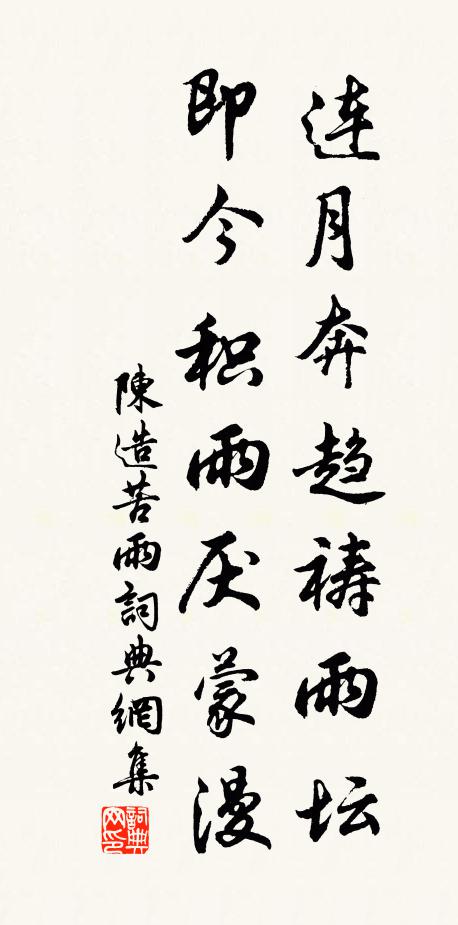 连月奔趋祷雨坛
即今积雨厌蒙漫
陳造苦雨詞典網集
詞典网印